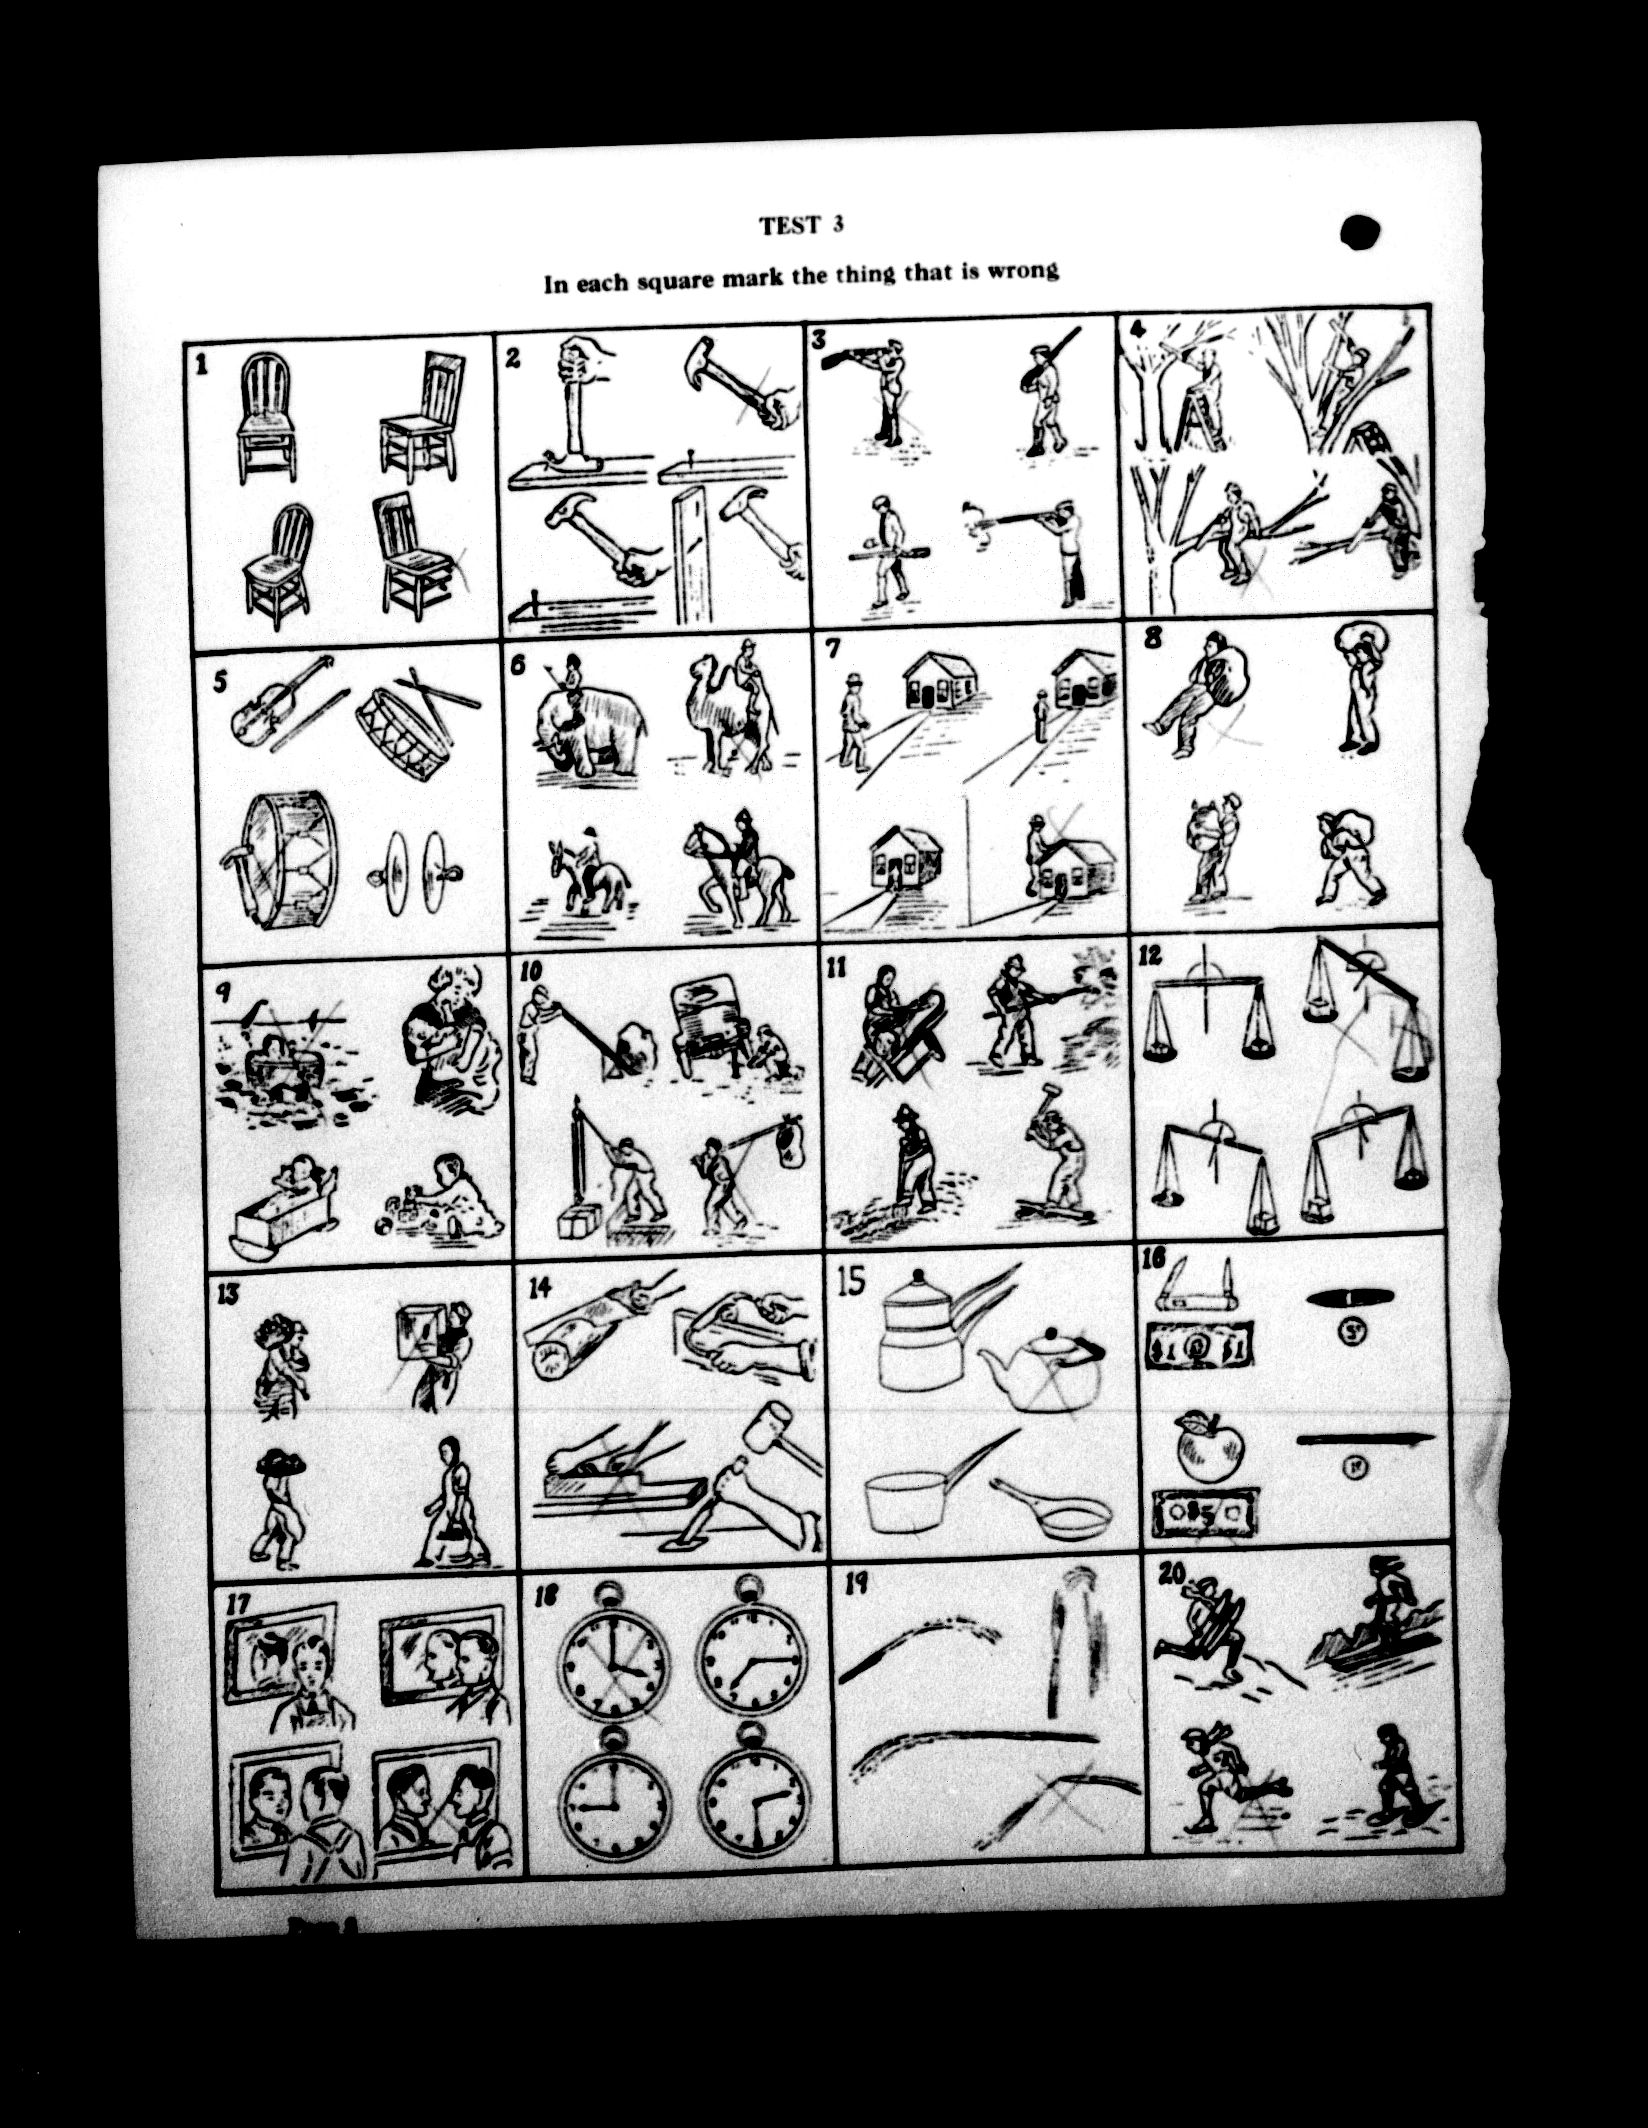 TEST 3
In each square mark the thing that is wrong
1
2
3
4
5
6
7
8
9
10
11
12
13
14
15
16
$1 $1
5¢
$5
1¢
17
18
19
20